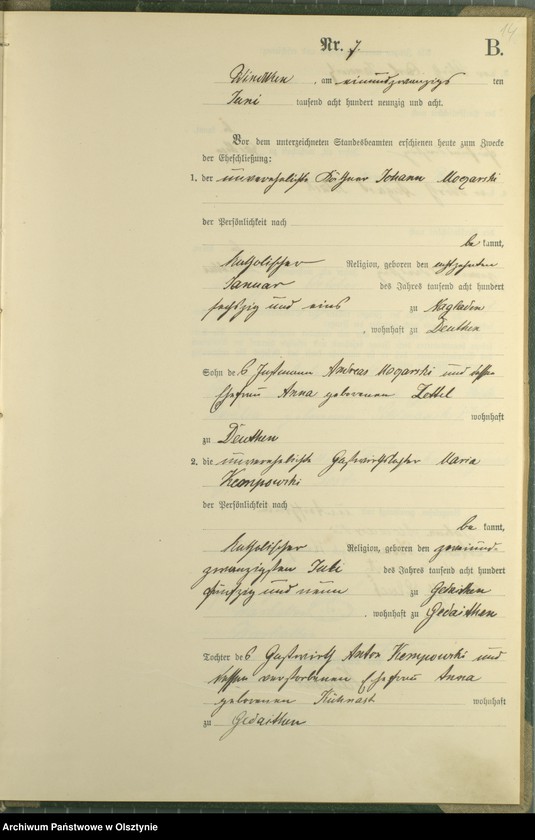 14
Nr. 7.
B.
Windtken, am einundzwanzigsten
Juni tausend acht hundert neunzig und acht.
Vor dem unterzeichneten Standesbeamten erschienen heute zum Zwecke
der Eheschließung:
1. der unverehelichte Johann Mogarski
der Persönlichkeit nach
bekannt,
katholischer Religion, geboren den achtzehnten
Januar des Jahres tausend acht hundert
sechszig und eins zu Nagladen
, wohnhaft zu Deuthen
Sohn des Instmann Andreas Mogarski und dessen
Ehefrau Anna geborenen Zettel
wohnhaft
zu Deuthen
2. die unverehelichte Gastwirthstochter Maria
Kempowski
der Persönlichkeit nach
bekannt,
katholischer Religion, geboren den zweiund-
zwanzigsten Juli des Jahres tausend acht hundert
fünfzig und neun zu Gedaithen
, wohnhaft zu Gedaithen
Tochter des Gastwirth Anton Kempowski und
dessen verstorbenen Ehefrau Anna
geborenen Kuhnast wohnhaft
zu Gedaithen
Archiwum Państwowe w Olsztynie